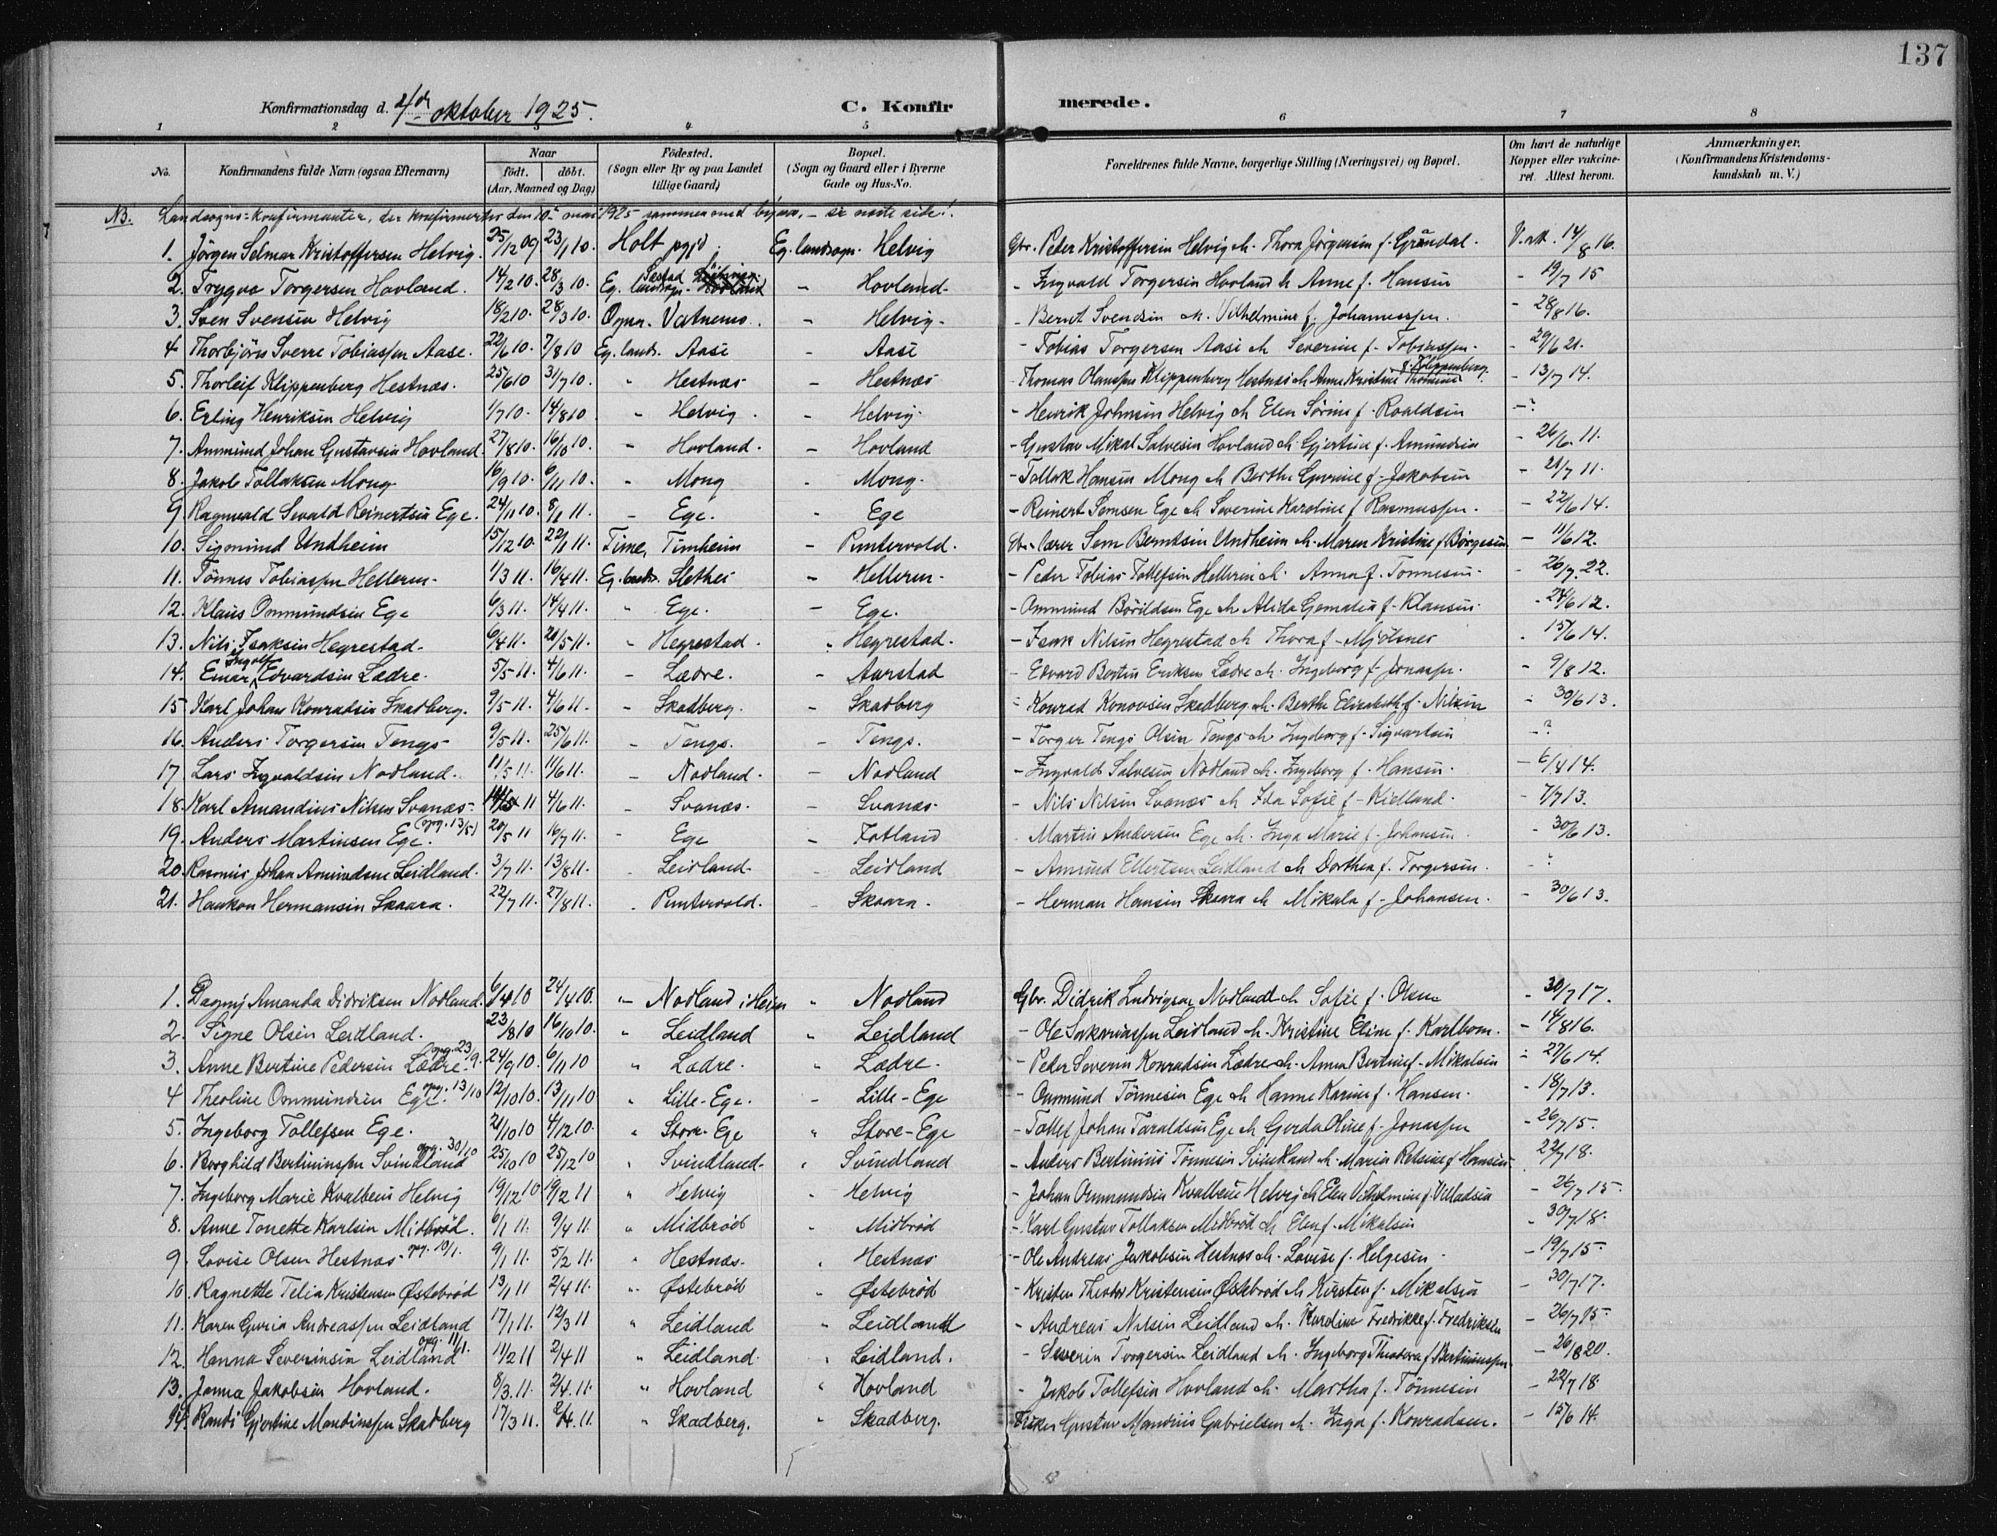 137
Konfirmationsdag d. 4de oktober 1925. C. Konfirmerede.
1 2 3 4 5 6 7 8
No. Konfirmandens fulde Navn (ogsaa Efternavn) Naar født. døbt. (Aar, Maaned og Dag) Fødested. (Sogn eller By og paa Landet tillige Gaard) Bopæl. (Sogn og Gaard eller i Byerne Gade og Hus-No. Forældrenes fulde Navne, borgerlige Stilling (Næringsvei) og Bopæl. Om havt de naturlige Kopper eller vakcineret. Attest herom. Anmærkninger. (Konfirmandens Kristendomskundskab m. V.)
NB. Landsogns-konfirmanter, der konfirmertes den 10de mai 1925 sammen med byens, – se næste side!
1. Jörgen Selmar Kristoffersen Helvig. 25/12 09 23/1 10. Holt pgjd. Eg. landsogn Helvig Gbr. Peder Kristoffersen Helvig & Thora Jörgensen f. Gröndal. V. att. 14/8 16.
2. Trygve Torgersen Hovland. 14/2 10. 28/3 10. Eg. landsogn – Hovland – Ingvald Torgersen Hovland & Anne f. Hansen – 19/7 15
3. Sven Svensen Helvig 18/2 10. 28/3 10. Ogna. Vatnemo. – Helvig – Bernt Svendsen & Vilhelmine f. Johannessen. – 28/8 16.
4 Thorbjörn Sverre Tobiassen Aase. 22/6 10. 7/8 10 Eg. lands. Aase – Aase – Tobias Torgersen Aase & Severine f. Tobiassen – 29/6 21.
5. Thorleif Klippenberg Hestnæs. 25/6 10 31/7 10. " Hestnæs – Hestnæs – Thomas Olaussen Klippenberg Hestnæs & Anne Kristine f. Klippenberg. – 13/7 14.
6. Erling Henriksen Helvig 1/7 10. 14/8 10. – Helvig. – Helvig. – Henrik Johnsen Helvig & Elen Sørine f. Roaldsen – ?
7. Ammund Johan Gustavsen Hovland. 27/8 10. 16/10 10. – Hovland. – Hovland – Gustav Mikal Salvesen Hovland & Gjertine f. Amundsen – 26/6 11.
8. Jakob Tollaksen Mong 16/9 10. 6/11 10. – Mong – Mong. – Tollak Hansen Mong & Berthe Gurine f. Jakobsen – 21/7 11.
9. Ragnvald Sevald Reinertsen Ege. 24/11 10. 8/1 11. – Ege. – Ege – Reinert Semsen Ege & Severine Karoline f. Rasmussen. – 22/6 14.
10. Sigmund Undheim 15/12 10. 22/1 11. Time, Timheim – Puntervold. Gbr. Lærer Sem Berntsen Undheim & Maren Kristine f. Börgesen. – 11/6 12.
11. Tönnes Tobiassen Helleren. 1/3 11. 16/4 11. Eg. lands. Slethei – Helleren. – Peder Tobias Tollefsen Helleren & Anna f. Tönnesen. – 26/7. 22.
12. Klaus Ommundsen Ege 6/3 11. 14/4 11. " Ege. – Ege. – Ommund Börildsen Ege & Alida f. Klausen. – 24/6 12.
13. Nils Isaksen Hegrestad. 6/4 11. 21/5 11. " Hegrestad. " Hegrestad. – Isak Nilsen Hegrestad & Thora f. Mjölsnes . 15/6 14.
14. Einar Ingolf Edvardsen Lædre. 5/5 11. 4/6 11. – Lædre. – Aarstad – Edvard Bertin Eriksen Lædre & Ingeborg f. Jonassen. – 9/8 12.
15. Karl Johan Konradsen Skadberg. 9/5 11. 4/6 11. – Skadberg. – Skadberg – Konrad Konovsen Skadberg & Berthe Elisabeth f. Nilsen – 30/6 13.
16. Anders Torgersen Tengs 9/5 11. 25/6 11. – Tengs. – Tengs. – Torger Tengs Olsen Tengs & Ingeborg f. Sigvartsen – ?
17 Lars Ingvaldsen Nodland. 11/5 11. 11/6 11. – Nodland. – Nodland – Ingvald Salvesen Nodland & Ingeborg f. Hansen. – 6/4 14.
18. Karl Amandius Nilsen Svanæs (opg. 13/5) 14/5 11 4/6 11. – Svanæs. – Svanæs – Nils Nilsen Svanæs & Ida Sofie f. Kielland. – 7/7 13.
19. Anders Martinsen Ege. 20/5 11 16/7 11. – Ege – Fotland – Martin Andersen Ege & Inga Marie f. Johansen. – 30/6 13.
20. Rasmus Johan Amundsen Leidland. 3/7 11. 13/8 11. – Leidland. – Leidland – Amund Ellertsen Leidland & Dorthea f. Torgersen. – ?
21. Haakon Hermansen Skaara. 22/7 11. 27/8 11. " Puntervold. – Skaara. – Herman Hansen Skaara & Mikala f. Johansen. – 30/6 13.
1. Dagny Amanda Didriksen Nodland. 6/4 10 24/4 10. " Nodland i Heien " Nodland Gbr. Didrik Ludvigsen Nodland & Sofie f. Olsen – 30/7 17.
2. Signe Olsen Leidland. 23/8 10 16/10 10. " Leidland " Leidland – Ole Sakariassen Leidland & Kristine Eline f. Karlsen. – 14/8 16.
3. Anne Bertine Pedersen Lædre. opg. 23/9. 24/9 10. 6/11 10 " Lædre. – Lædre. – Peder Severin Konradsen Lædre & Anna Bertine f. Mikalsen – 27/6 14.
4 Theoline Ommundsen Ege. opg. 13/10 12/10 10. 13/11 10 " Lille-Ege. – Lille-Ege – Ommund Tönnesen Ege & Hanne Karine f. Hansen. – 18/7 13.
5. Ingeborg Tollefsen Ege. 21/10 10 4/12 10. " Store-Ege " Store-Ege – Tollef Johan Taraldsen Ege & Gerda Oline f. Jonassen – 26/7 15.
6. Borghild Bertiniussen Svindland opg. 30/10 25/10 10 25/12 10 " Svindland. " Svindland – Anders Bertinius Tönnesen Svindland & Maria f. Hansen – 22/7 18.
7. Ingeborg Marie Kvalbein Helvig 19/12 10 19/2 11 " Helvig " Helvig – Johan Ommundsen Kvalbein Helvig & Elen Vilhelmine f. Villadsen – 26/7 15.
8. Anne Tonette Karlsen Midbrød. 6/1 11. 9/4 11. " Midbrød " Midbrød – Karl Gustav Tollaksen Midbrød & Elen f. Mikalsen . 30/7 18.
9. Lovise Olsen Hestnæs opg. 10/1. 9/1 11. 5/2 11. " Hestnæs. " Hestnæs – Ole Andreas Jakobsen Hestnæs & Lovise f. Helgesen. – 19/7 15.
10 Ragnette Telia Kristensen Østebrød 13/1 11 2/4 11. " Østebrød " Østebrød – Kristen Theodor Kristensen Østebrød & Kirsten f. Mikalsen – 30/7 17.
11. Karen Guria Andreassen Leidland 17/1 11. 12/3 11 " Leidland " Leidland – Andreas Nilsen Leidland & Karoline Fredrikke f. Fredriksen – 26/7 15.
12. Hanna Severinsen Leidland opg. 11/1. 11/2 11 2/4 11 " Leidland. " Leidland. – Severin Torgersen Leidland & Ingeborg Theodora f. Bertiniussen – 26/8 20.
13. Janna Jakobsen Hovland. 8/3 11. 2/4. 11. " Hovland " Hovland – Jakob Tollefsen Hovland & Martha f. Tönnesen – 22/7 18.
14. Randi Gjertine Mandiussen Skadberg 17/3 11. 2/4. 11. " Skadberg. " Skadberg. Fisker Gustav Mandius Gabrielsen & Inga f. Konradsen. – 15/6 14.